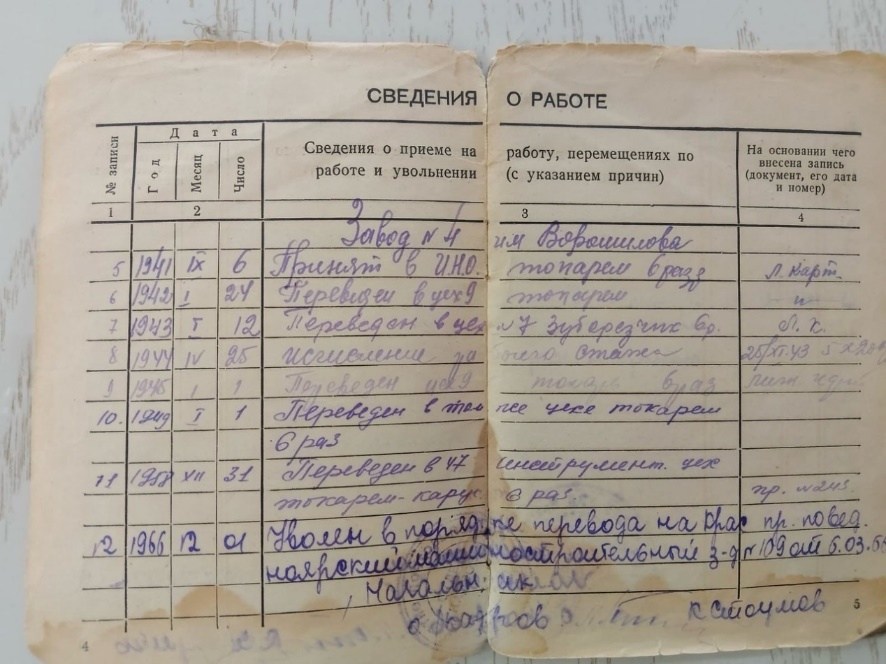 СВЕДЕНИЯ О РАБОТЕ
№ записи
Дата
Год
Месяц
Число
Сведения о приеме на работу, перемещениях по
работе и увольнении (с указанием причин)
На основании чего
внесена запись
(документ, его дата
и номер)
1 2 3 4
Завод № 4 им Ворошилова
5 1941 IX 6 Принят в И.Н.О. токарем 6 разр Л. Карт.
6 1942 I 24 Переведен в цех 9 токарем
7 1943 I 12 Переведен в цех №7 Зуборезчик 6р. Л. К.
8 1944 IV 25 исчисление стажа
9 1945 I 1 Переведен цех 9 токарь 6 раз
10. 1949 I 1 Переведен в том же цехе токарем
6 раз
11 1958 XII 31 Переведен в 47 инструмент. цех
токарем-кару 6 раз. пр. №
12 1966 12 01 Уволен в порядке перевода на Крас пр. по вед.
ноярский машиностроительный з-д № 109 от 6.03.66
Начальн.
4 5